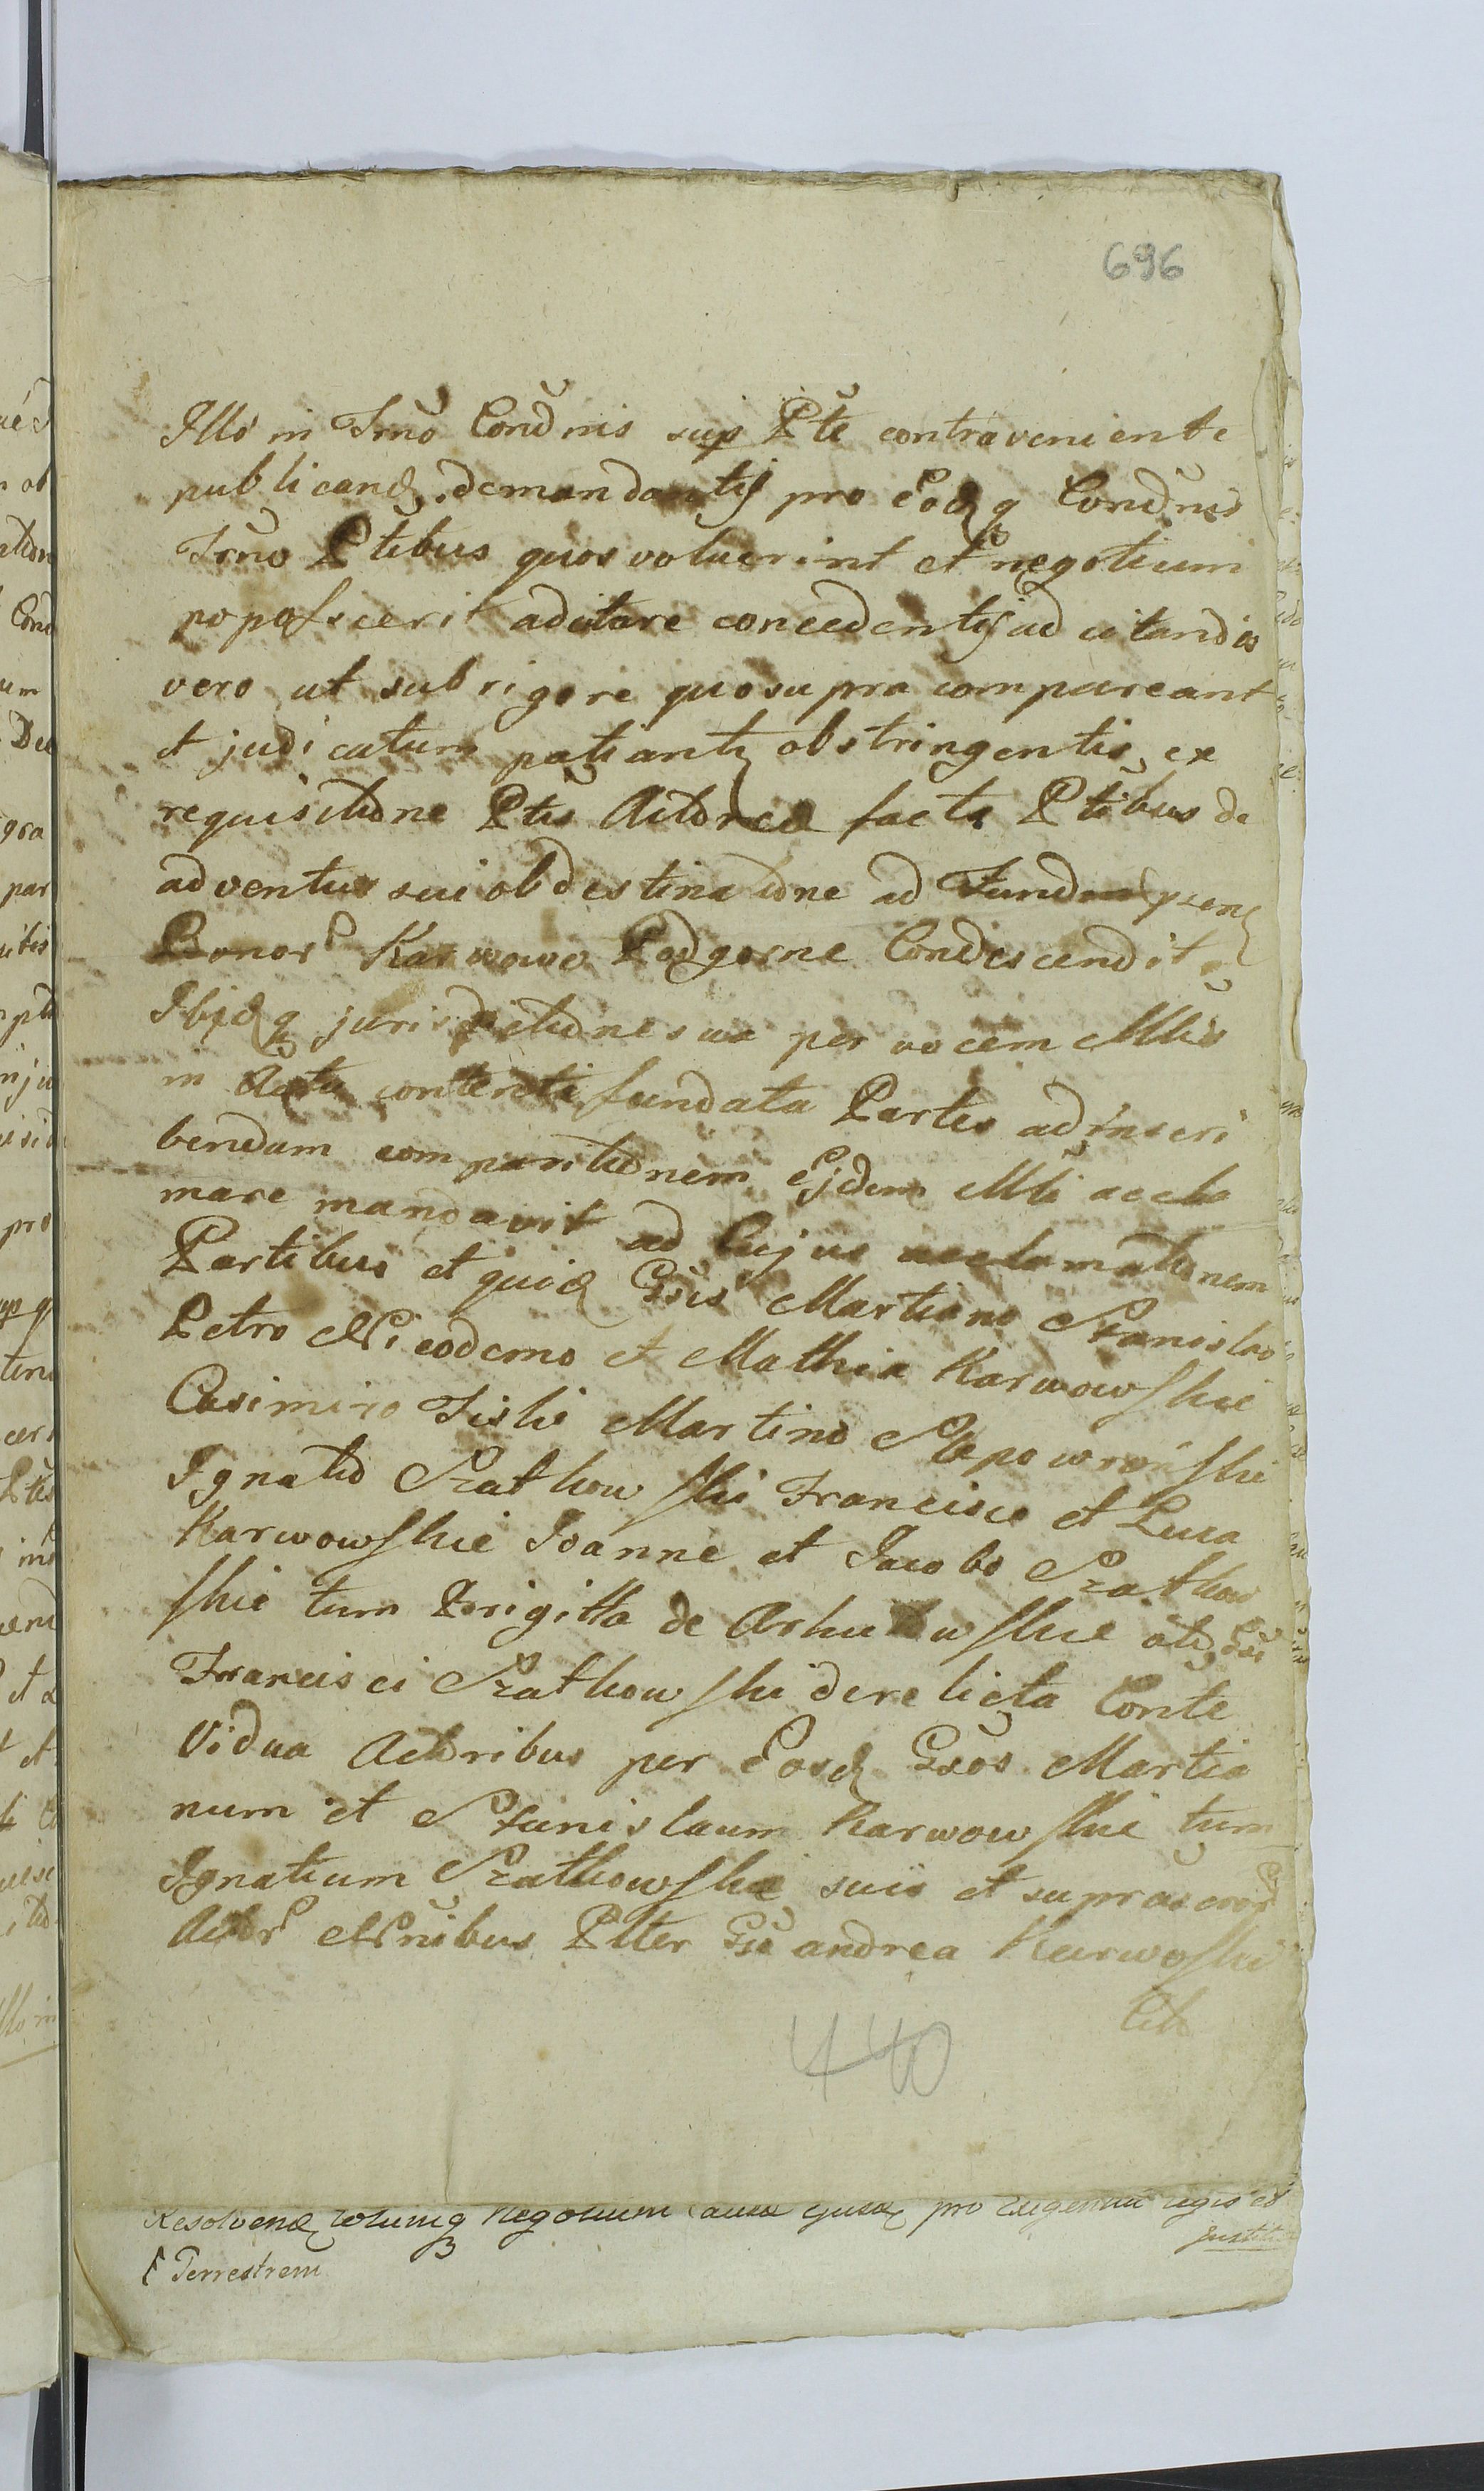 696
Illô in Trnô Condnis sup Pte contraveniente
publicand demandantis pro Eodq Condnis
Trnô Ptibus quos voluerint et negotium
popossceri adcitare concedentis ad citandis
vero ut sub rigore quo supra compareant
et judicatum patiant obstringentis ex
requisitione Ptis Actorea facta Ptibus de
adventus sui ob destinatione ad Fundum psens
Bonor Karwowo Podgorne Condescendit
Ibidq jurisdictione sua per vocem Mlis
in Actu contenti fundata Partes ad inscri
bendam comparitionem Ejdem Mli accla
mare mandavit ad Cujus acclamationem
Partibus et quid Gsis Martiano Stanislao
Petro Nicodemo et Mathia Karwowskie
Casimiro Fiski Martino Slepowronski
Ignatio Szatkowski Francisco et Luca
Karwowskie Joanne et Jacobo Szatkow
skie tum Brigitta de Arhukowskie olis Gsi
Francisci Szatkowski derelicta Conte
Vidua Actoribus per Eosd Gsos Martia
num et Stanislaum Karwowskie tum
Ignatium Szatkowski suis et suprascrop
Actor Nnibus Plter Gse andrea Karwoski
Cit
440
Resolvend totumq Negotium causa ejusd pro exigentia legis et
justiti
Terrestrem